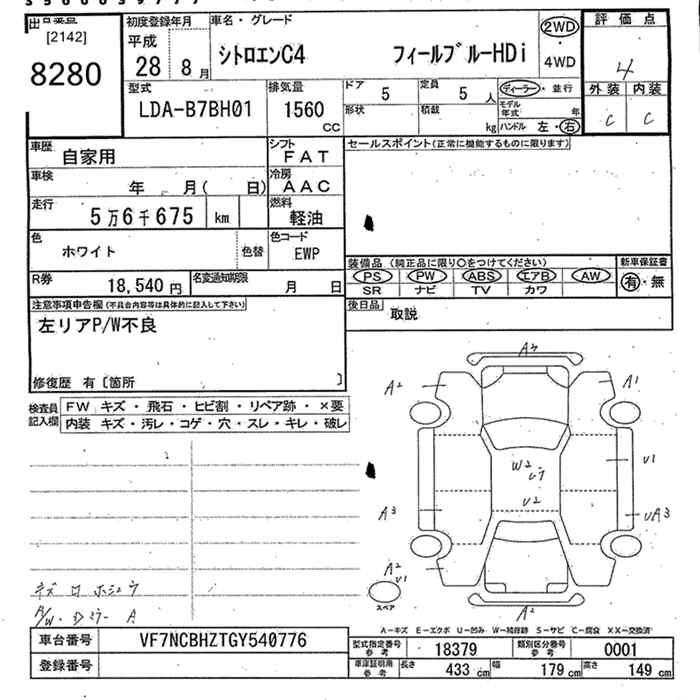 出品番
初度登録年月
車名・グレード
2WD
評価点
[2142]
平成
シトロエンC4 フィールブルーHDi
・
4
8280
28 8月
4WD
型式
排気量
ドア 5
定員 5 人
ディーラー・並行
外装 内装
LDA-B7BH01
1560 CC
形状
積載 kg
モデル年式 年
ハンドル 左・右
C C
車歴 自家用
シフト FAT
セールスポイント(正常に機能するものに限ります)
車検 年 月( 日)
冷房 AAC
走行 5万6千675 km
燃料 軽油
色 ホワイト
色替
色コード EWP
装備品(純正品に限り○をつけてください)
新車保証書
PS PW ABS エアB AW
有・無
R券 18,540円
名変通知期限 月 日
SR ナビ TV カワ
注意事項申告欄(不具合内容等は具体的に記入して下さい)
後日品 取説
左リアP/W不良
修復歴 有〔箇所 〕
検査員記入欄
FW キズ・飛石・ヒビ割・リペア跡・×要
内装 キズ・汚レ・コゲ・穴・スレ・キレ・破レ
A3
A2
A1
W2
U2
U1
A3
UA3
A2
U1
スペア
A2
A-キズ E-エクボ U-凹み W-補修跡 S-サビ C-腐食 XX-交換済
車台番号 VF7NCBHZTGY540776
型式指定番号 参考 18379
類別区分番号 参考 0001
登録番号
車庫証明用 参考 長さ 433 cm 幅 179 cm 高さ 149 cm